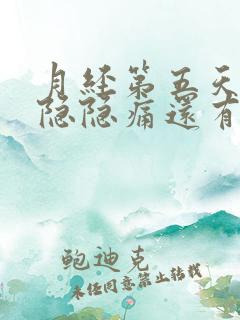 月经第五天
隐隐痛還有
鲍迪克
未经同意禁止转载